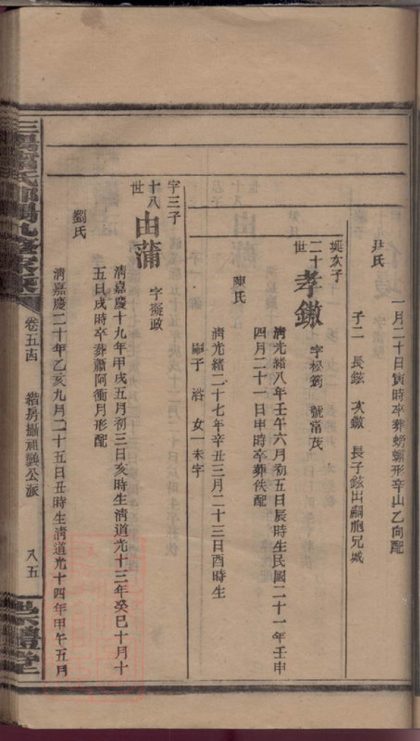 一月二十日寅時卒葬螃蟹形辛山乙向配
尹氏
子二 長鉉 次鏾 長子鉉出嗣胞兄城
梃次子
二十世
孝鏾
字松劉 號富茂
清光緒八年壬午六月初五日辰時生民國二十一年壬申
四月二十一日申時卒葬佚配
陳氏
清光緒二十七年辛丑三月二十三日酉時生
嗣子 浴 女一未字
字三子
十八世
由蒲
字擬政
清嘉慶十九年甲戌五月初三日亥時生清道光十三年癸巳十月十
五日戌時卒葬蕭阿衝月形配
劉氏
清嘉慶二十年乙亥九月二十五日丑時生清道光十四年甲午五月
卷五古
公派
八五